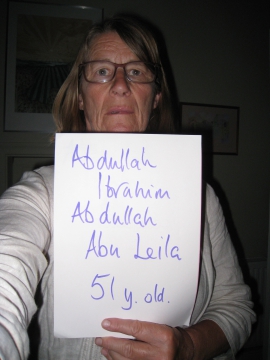 Abdullah
Ibrahim
Abdullah
Abu Leila
51 y. old.